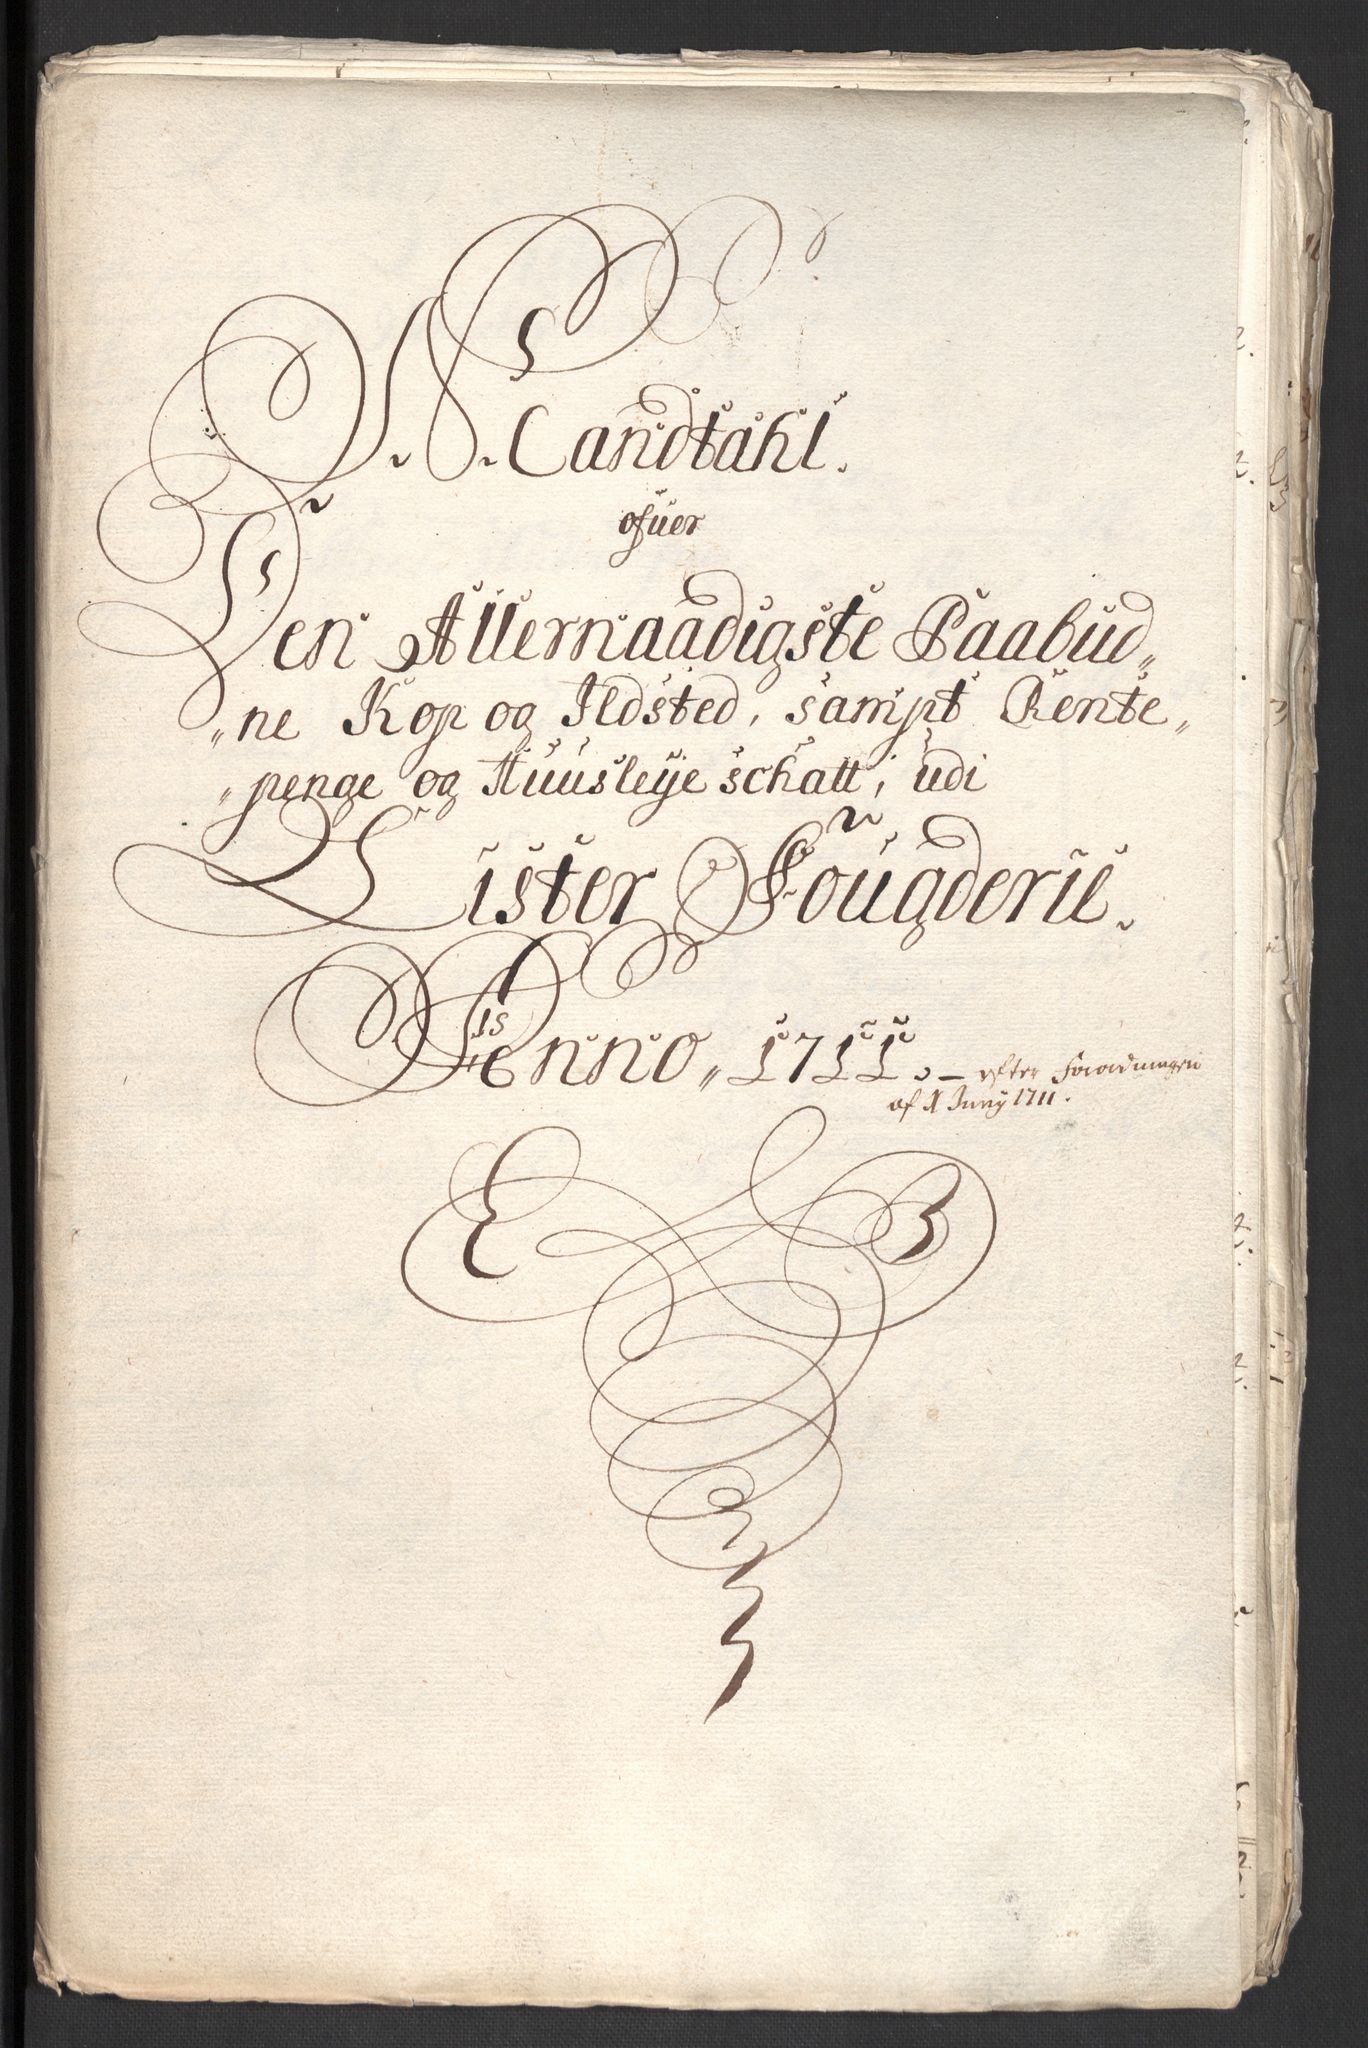 Mandtahl.
ofuer
Den Allernaadigste Paabud„
„ne Kop og Ildsted, sampt Rente„
„penge og Huusleye schatt, udi
Lister Fougderie.
Anno„ 1711. – efter Forordningen
af Juny 1711.